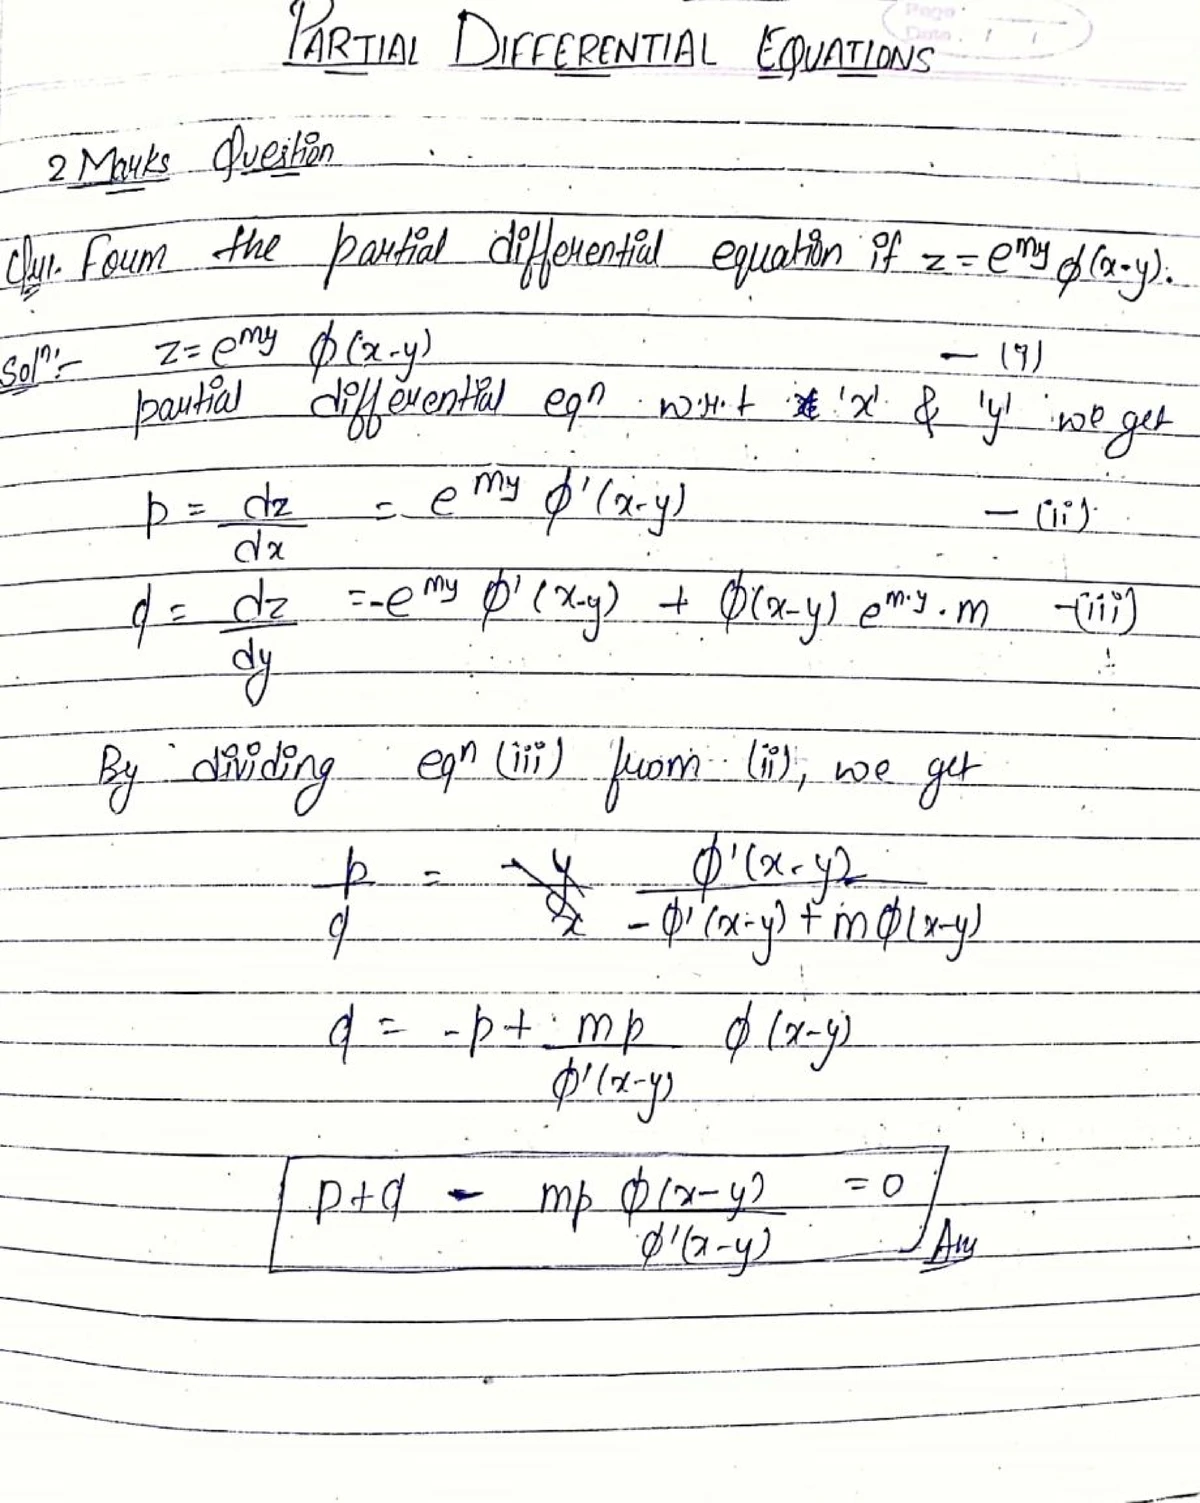 Page
Date. / /
PARTIAL DIFFERENTIAL EQUATIONS
2 Marks Question
Qu1. Form the partial differential equation if z = e^{my} ϕ(x-y).
Solⁿ:- z = e^{my} ϕ(x-y) — (i)
partial differential eqⁿ w.r.t 'x' & 'y' we get
p = dz/dx = e^{my} ϕ'(x-y) — (ii)
q = dz/dy = -e^{my} ϕ'(x-y) + ϕ(x-y) e^{m.y}.m -(iii)
By dividing eqⁿ (iii) from (ii), we get
p/q = ϕ'(x-y) / -ϕ'(x-y) + mϕ(x-y)
q = -p + mp/ϕ'(x-y) ϕ(x-y)
p+q - mp ϕ(x-y)/ϕ'(x-y) = 0 Ans